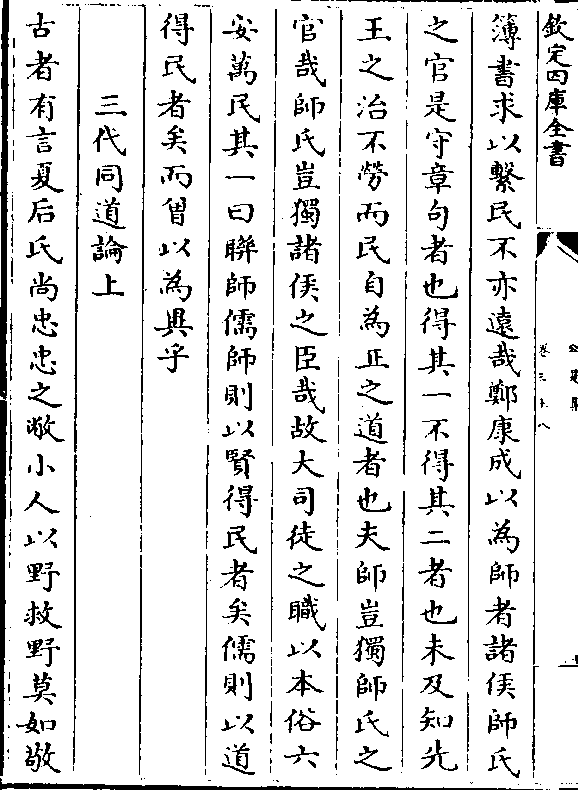 欽定四庫全書
簿書求以繫民不亦遠哉鄭康成以為師者諸侯師氏
之官是守章句者也得其一不得其二者也未及知先
王之治不勞而民自為正之道者也夫師豈獨師氏之
官哉師氏豈獨諸侯之臣哉故大司徒之職以本俗六
安萬民其一曰聯師儒師則以賢得民者矣儒則以道
得民者矣而曾以為異乎
三代同道論上
古者有言夏后氏尚忠忠之敝小人以野救野莫如敬